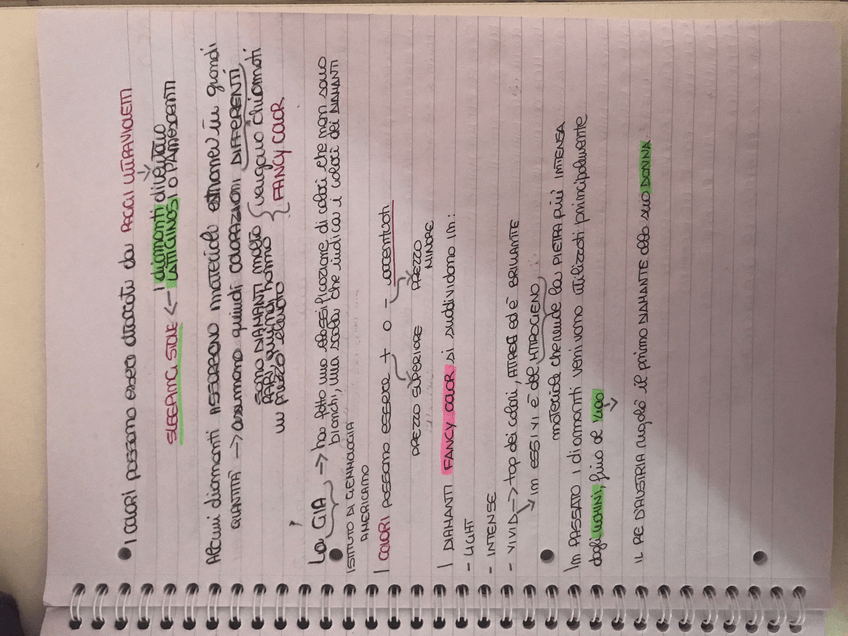 I COLORI possono essere attaccati dai RAGGI ULTRAVIOLETTI
SLEEPING STONE <- I diamanti diventano
LATTIGINOSI O FLAMESCENTI
Alcuni diamanti ASSORBONO materiale estraneo in grandi
QUANTITÀ -> assumono quindi COLORAZIONI DIFFERENTI
SONO DIAMANTI molto
RARI quindi hanno
un prezzo elevato
vengono chiamati
FANCY COLOR
La GIA -> ha fatto una classificazione di colori che non sono
bianchi, una scala che indica i colori dei DIAMANTI
ISTITUTO DI GEMMOLOGIA
AMERICANO
I COLORI possono essere + o - accentuati
PREZZO SUPERIORE PREZZO
MINORE
I DIAMANTI FANCY COLOR si suddividono in:
- LIGHT
- INTENSE
- VIVID -> top dei colori, ATTRAE ed è BRILLANTE
-> in ESSI VI È del NITROGENO
materiale che rende la PIETRA più INTENSA
In PASSATO i diamanti venivano utilizzati principalmente
dagli UOMINI, fino al 1400
IL RE D'AUSTRIA regalò il primo DIAMANTE alla sua DONNA